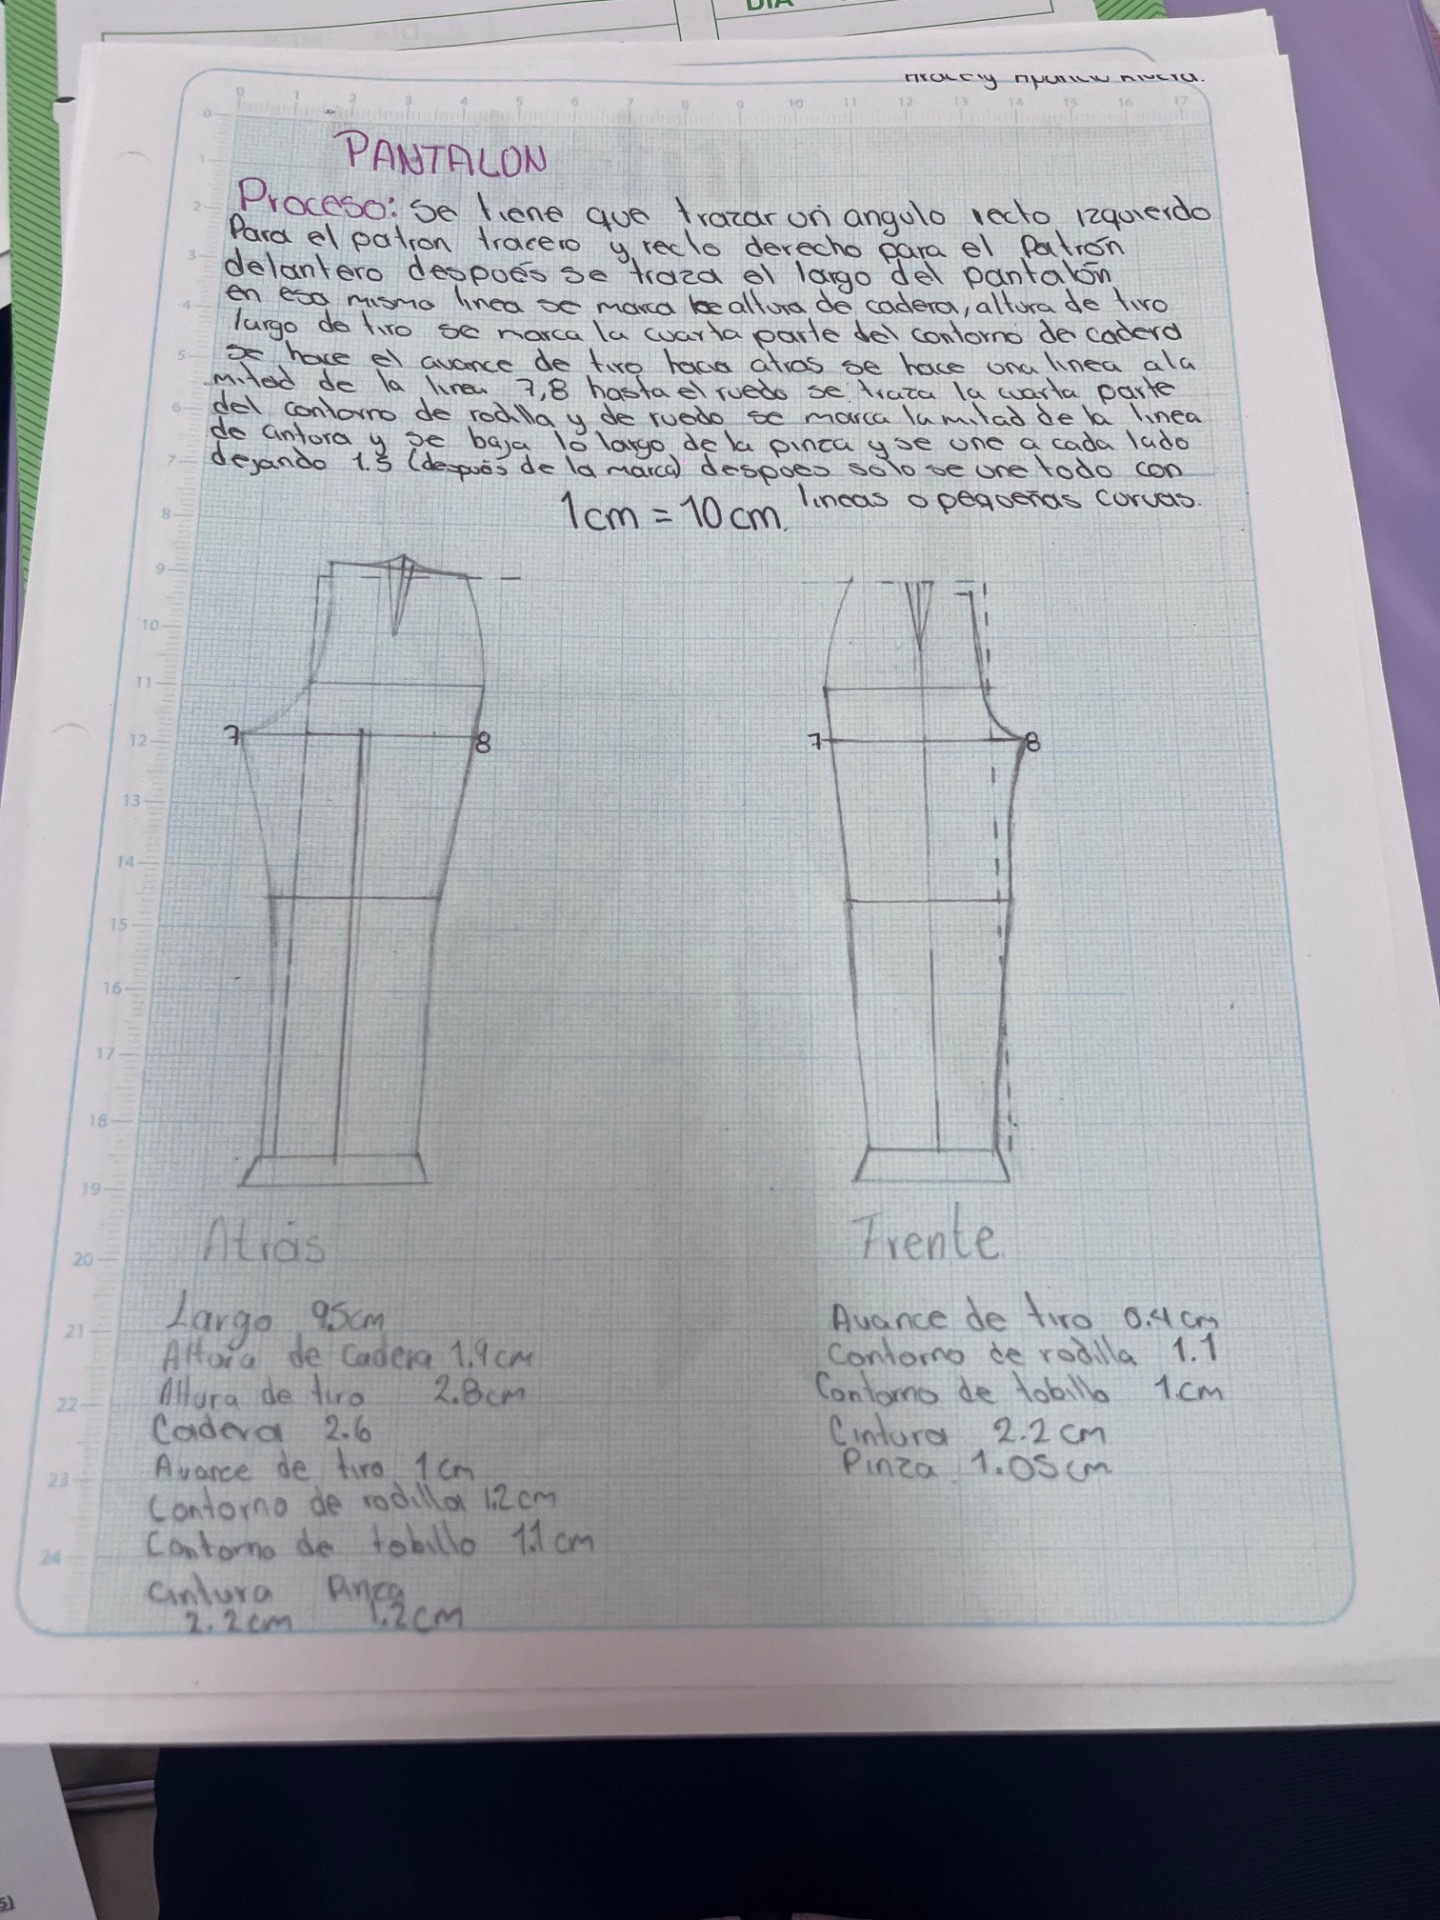 DIA
PANTALON
Proceso: Se tiene que trazar un angulo recto izquierdo
Para el patron tracero y recto derecho para el Patrón
delantero después se traza el largo del pantalón
en esa misma linea se marca la altura de cadera, altura de tiro
largo de tiro se marca la cuarta parte del contorno de cadera
se hace el avance de tiro hacia atras se hace una linea ala
mitad de la linea 7,8 hasta el ruedo se traza la cuarta parte
del contorno de rodilla y de ruedo se marca la mitad de la linea
de cintura y se baja lo largo de la pinza y se une a cada lado
dejando 1.5 (después de la marca) despues solo se une todo con
lineas o pequeñas curvas.
1cm = 10cm.
7 8
7 8
Atrás
Largo 95cm
Altura de cadera 1.9cm
Altura de tiro 2.8cm
Cadera 2.6
Avance de tiro 1cm
Contorno de rodilla 1.2cm
Contorno de tobillo 1.1cm
Cintura Pinza
2.2cm 1.2cm
Frente
Avance de tiro 0.4cm
Contorno de rodilla 1.1
Contorno de tobillo 1cm
Cintura 2.2cm
Pinza 1.05cm